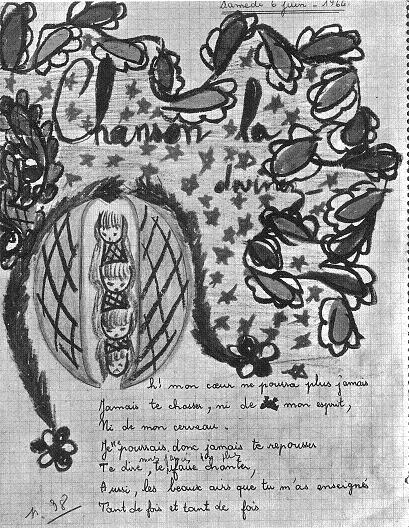 Samedi 6 juin - 1964
Chanson la
divine
Ah! mon cœur ne pourra plus jamais
Jamais te chasser, ni de mon esprit,
Ni de mon cerveau.
Je ne pourrais, donc jamais te repousser
Te dire, te faire chanter,
Aussi, les beaux airs que tu m'as enseignés
Tant de fois et tant de fois
n. 98